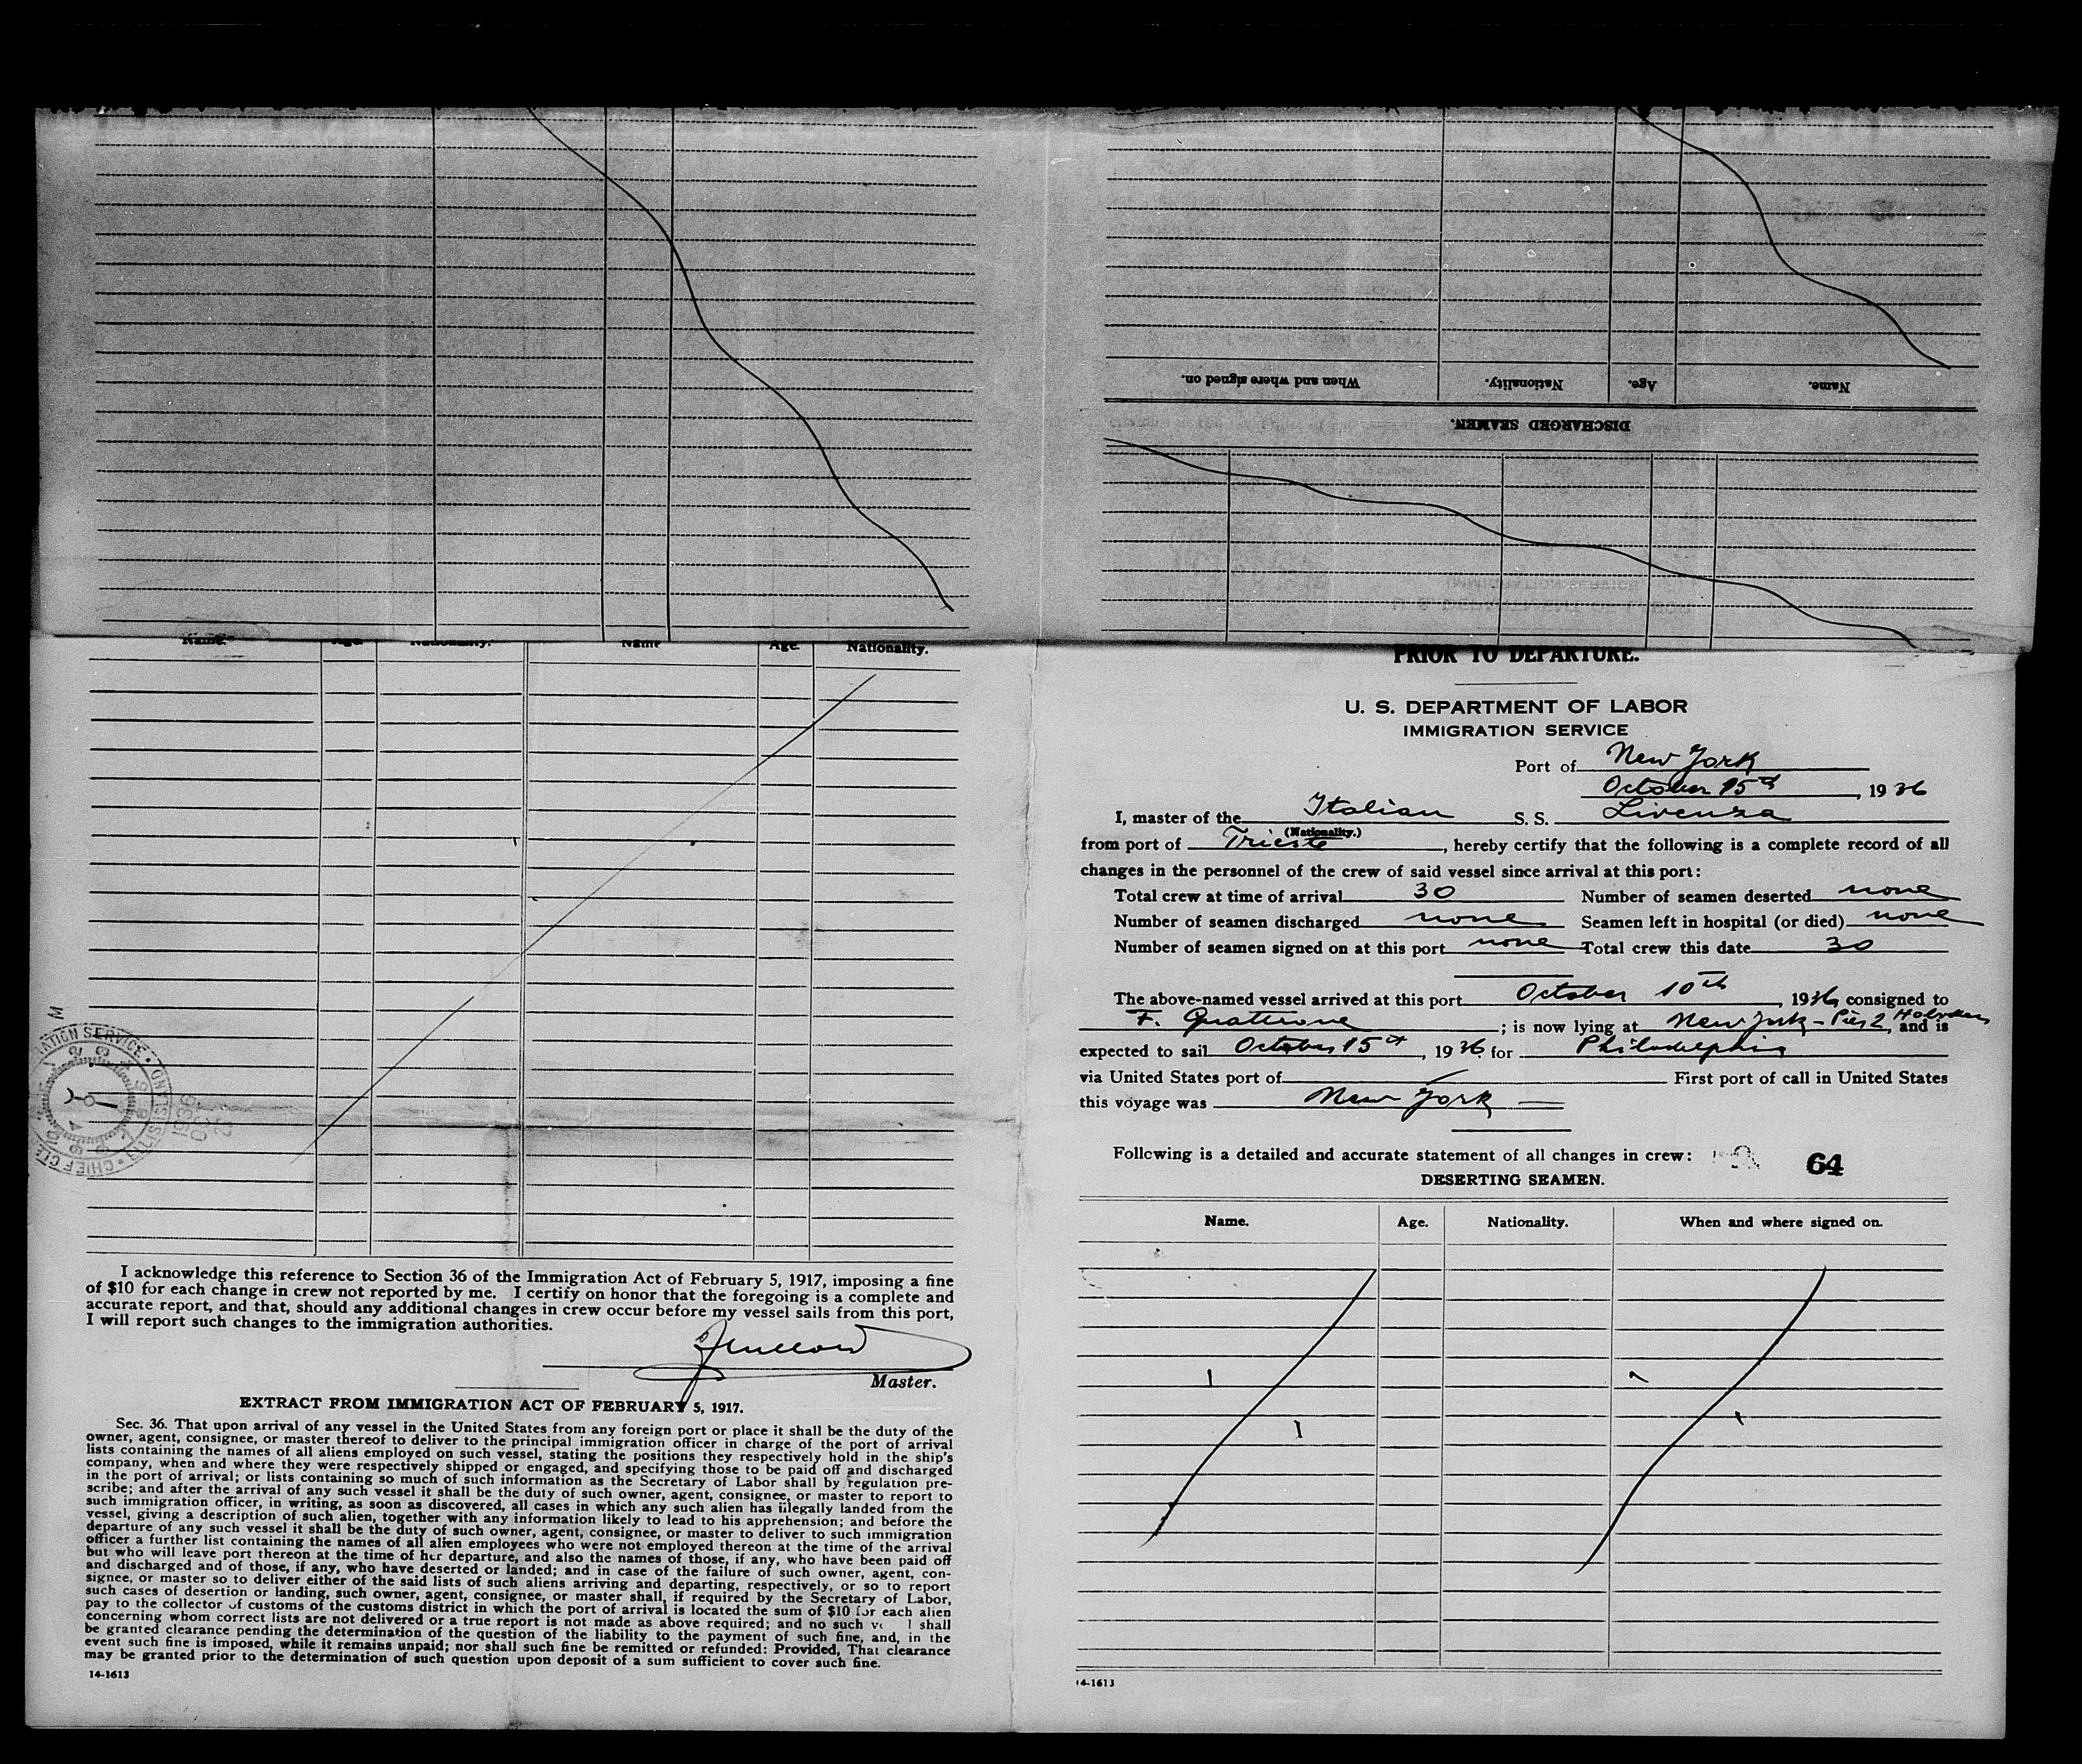 When and where signed on.
Nationality.
Age.
Name.
DISCHARGED SEAMEN.
Name.
Age.
Nationality.
Name
Age.
Nationality.
I acknowledge this reference to Section 36 of the Immigration Act of February 5, 1917, imposing a fine
of $10 for each change in crew not reported by me. I certify on honor that the foregoing is a complete and
accurate report, and that, should any additional changes in crew occur before my vessel sails from this port,
I will report such changes to the immigration authorities.
Master.
EXTRACT FROM IMMIGRATION ACT OF FEBRUARY 5, 1917.
Sec. 36. That upon arrival of any vessel in the United States from any foreign port or place it shall be the duty of the
owner, agent, consignee, or master thereof to deliver to the principal immigration officer in charge of the port of arrival
lists containing the names of all aliens employed on such vessel, stating the positions they respectively hold in the ship's
company, when and where they were respectively shipped or engaged, and specifying those to be paid off and discharged
in the port of arrival; or lists containing so much of such information as the Secretary of Labor shall by regulation pre-
scribe; and after the arrival of any such vessel it shall be the duty of such owner, agent, consignee, or master to report to
such immigration officer, in writing, as soon as discovered, all cases in which any such alien has illegally landed from the
vessel, giving a description of such alien, together with any information likely to lead to his apprehension; and before the
departure of any such vessel it shall be the duty of such owner, agent, consignee, or master to deliver to such immigration
officer a further list containing the names of all alien employees who were not employed thereon at the time of the arrival
but who will leave port thereon at the time of her departure, and also the names of those, if any, who have been paid off
and discharged and of those, if any, who have deserted or landed; and in case of the failure of such owner, agent, con-
signee, or master so to deliver either of the said lists of such aliens arriving and departing, respectively, or so to report
such cases of desertion or landing, such owner, agent, consignee, or master shall, if required by the Secretary of Labor,
pay to the collector of customs of the customs district in which the port of arrival is located the sum of $10 for each alien
concerning whom correct lists are not delivered or a true report is not made as above required; and no such ve l shall
be granted clearance pending the determination of the question of the liability to the payment of such fine, and, in the
event such fine is imposed, while it remains unpaid; nor shall such fine be remitted or refunded: Provided, That clearance
may be granted prior to the determination of such question upon deposit of a sum sufficient to cover such fine.
14-1613
PRIOR TO DEPARTURE.
U. S. DEPARTMENT OF LABOR
IMMIGRATION SERVICE
Port of New York
October 15th, 1936
I, master of the Italian S. S. Livenza
(Nationality.)
from port of Trieste, hereby certify that the following is a complete record of all
changes in the personnel of the crew of said vessel since arrival at this port:
Total crew at time of arrival 30 Number of seamen deserted none
Number of seamen discharged none Seamen left in hospital (or died) none
Number of seamen signed on at this port none Total crew this date 30
The above-named vessel arrived at this port October 10th, 1936, consigned to
F. Quattrone; is now lying at New York - Pier 2, Hoboken, and is
expected to sail October 15th, 1936 for Philadelphia
via United States port of First port of call in United States
this voyage was New York
Following is a detailed and accurate statement of all changes in crew:
64
DESERTING SEAMEN.
Name. Age. Nationality. When and where signed on.
14-1613